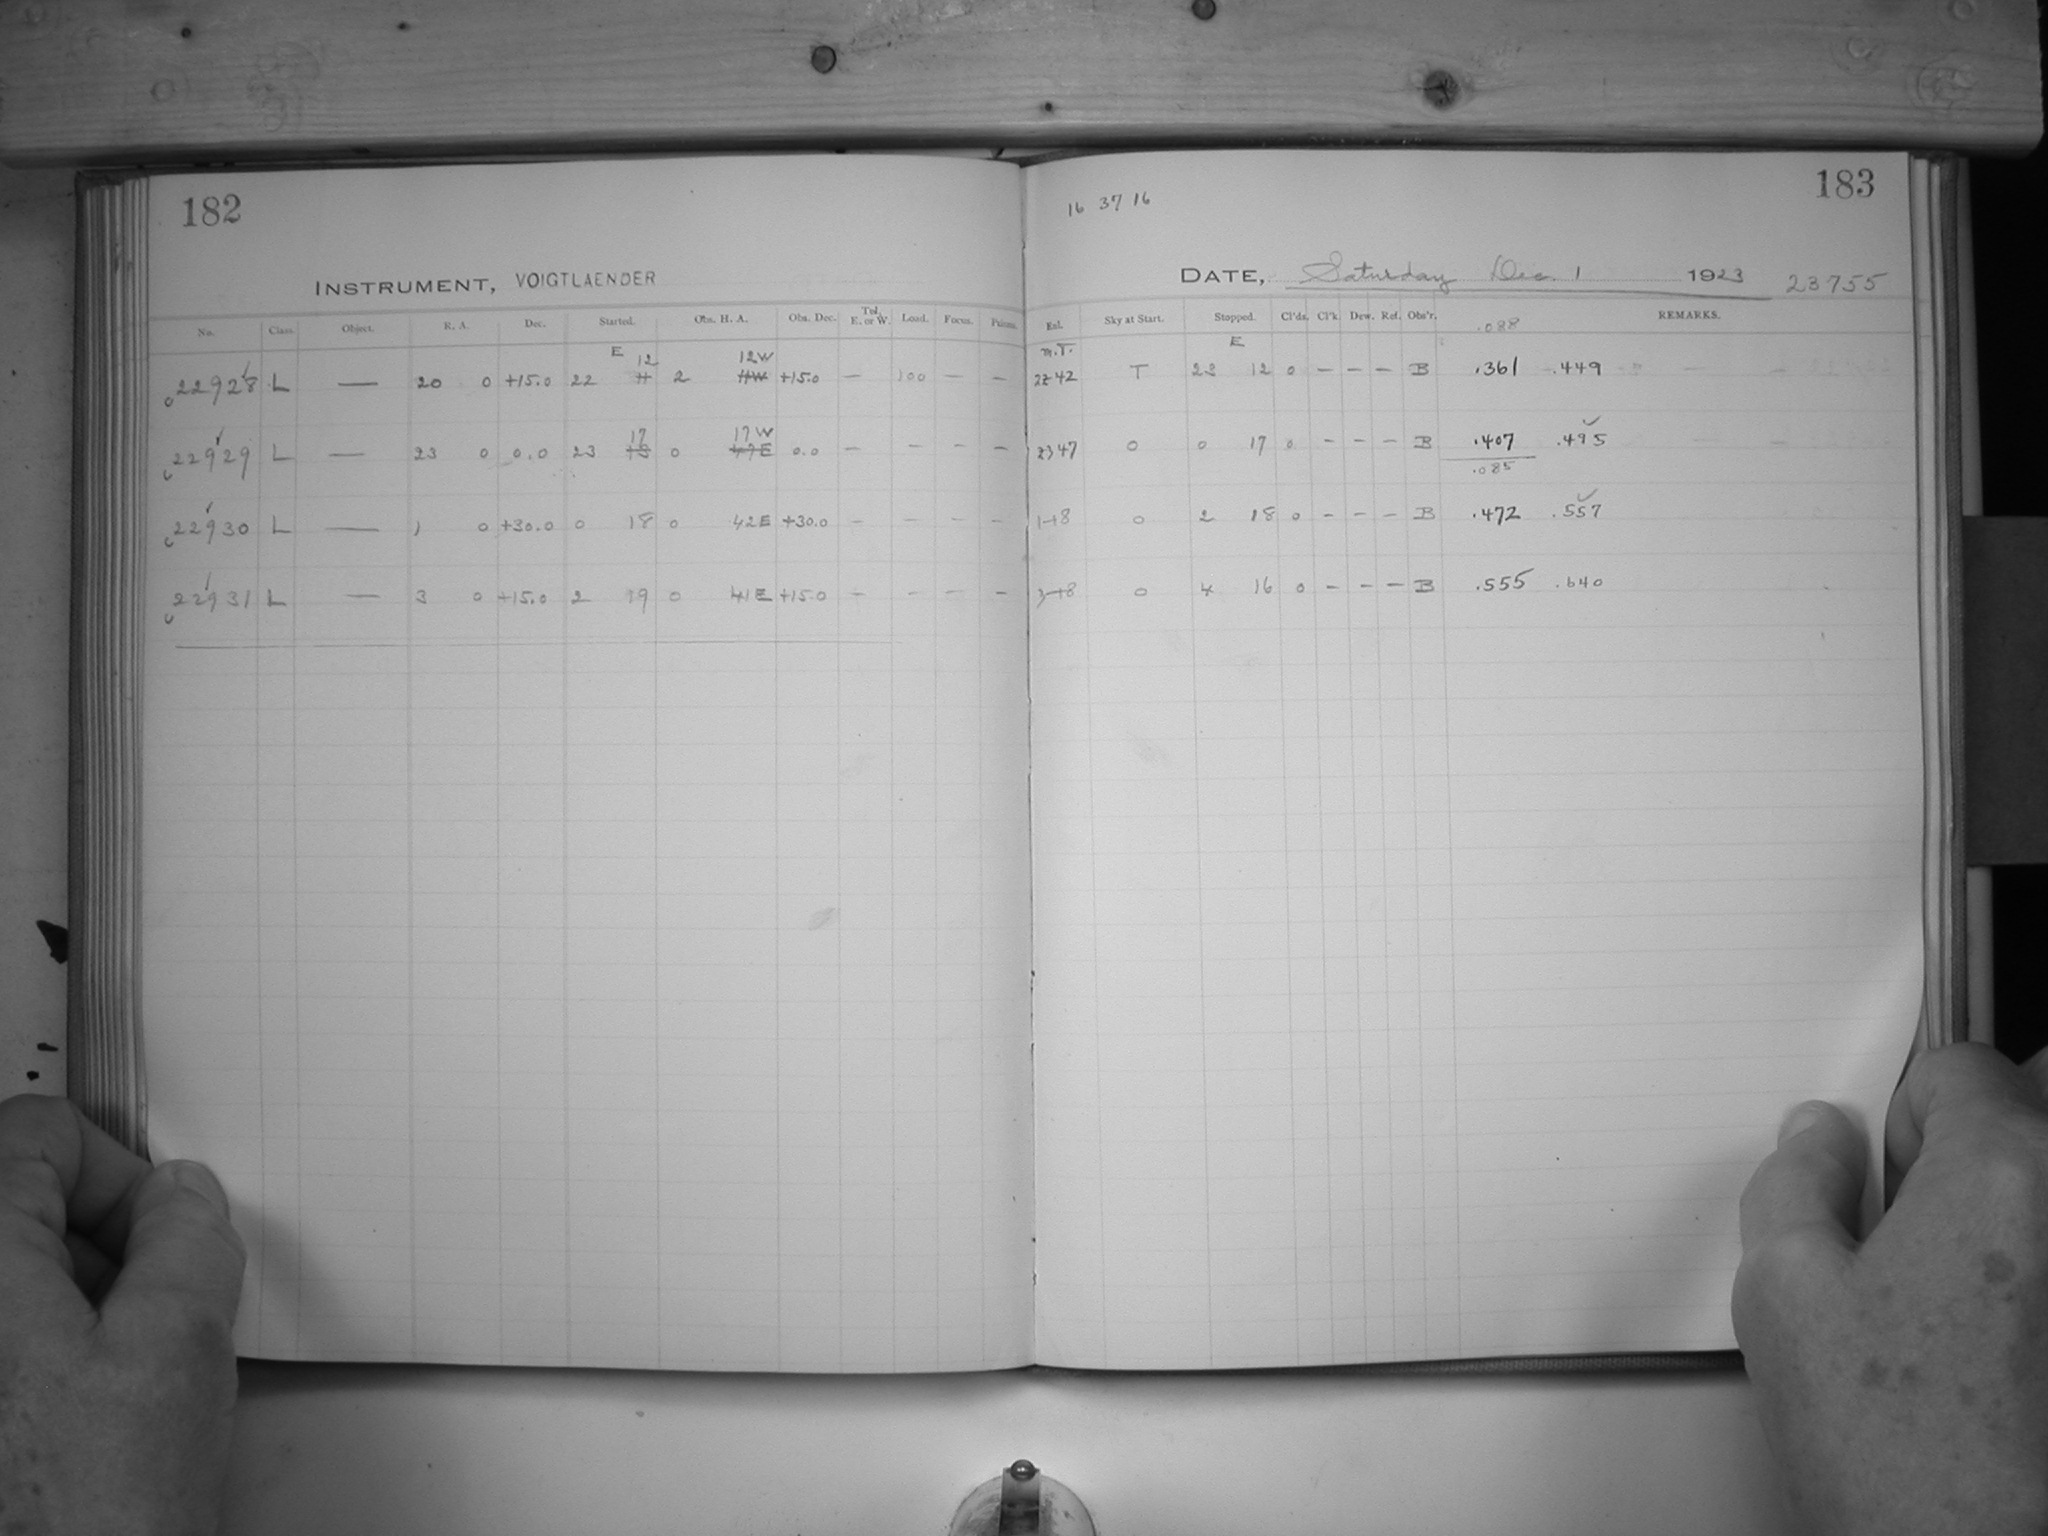 182
INSTRUMENT, VOIGTLAENDER
No. Class. Object. R. A. Dec. Started. Obs. H. A. Obs. Dec. Tel. E. or W. Load. Focus.
E 12 12W
22928 L — 20 0 +15.0 22 11 2 11W +15.0 — 100 — —
17 17W
22929 L — 23 0 0.0 23 18 0 47E 0.0 — — — —
22930 L — 1 0 +30.0 0 18 0 42E +30.0 — — — —
22931 L — 3 0 +15.0 2 19 0 41E +15.0 — — — —
183
16 37 16
DATE, Saturday Dec. 1 1923 23755
Sky at Start. Stopped. Cl'ds. Cl'k. Dew. Ref. Obs'r. .088 REMARKS.
m.T. E
22 42 T 23 12 0 — — — B .361 .449
23 47 0 0 17 0 — — — B .407 .495
.085
1 0 2 18 0 — — — B .472 .557
0 4 16 0 — — — B .555 .640